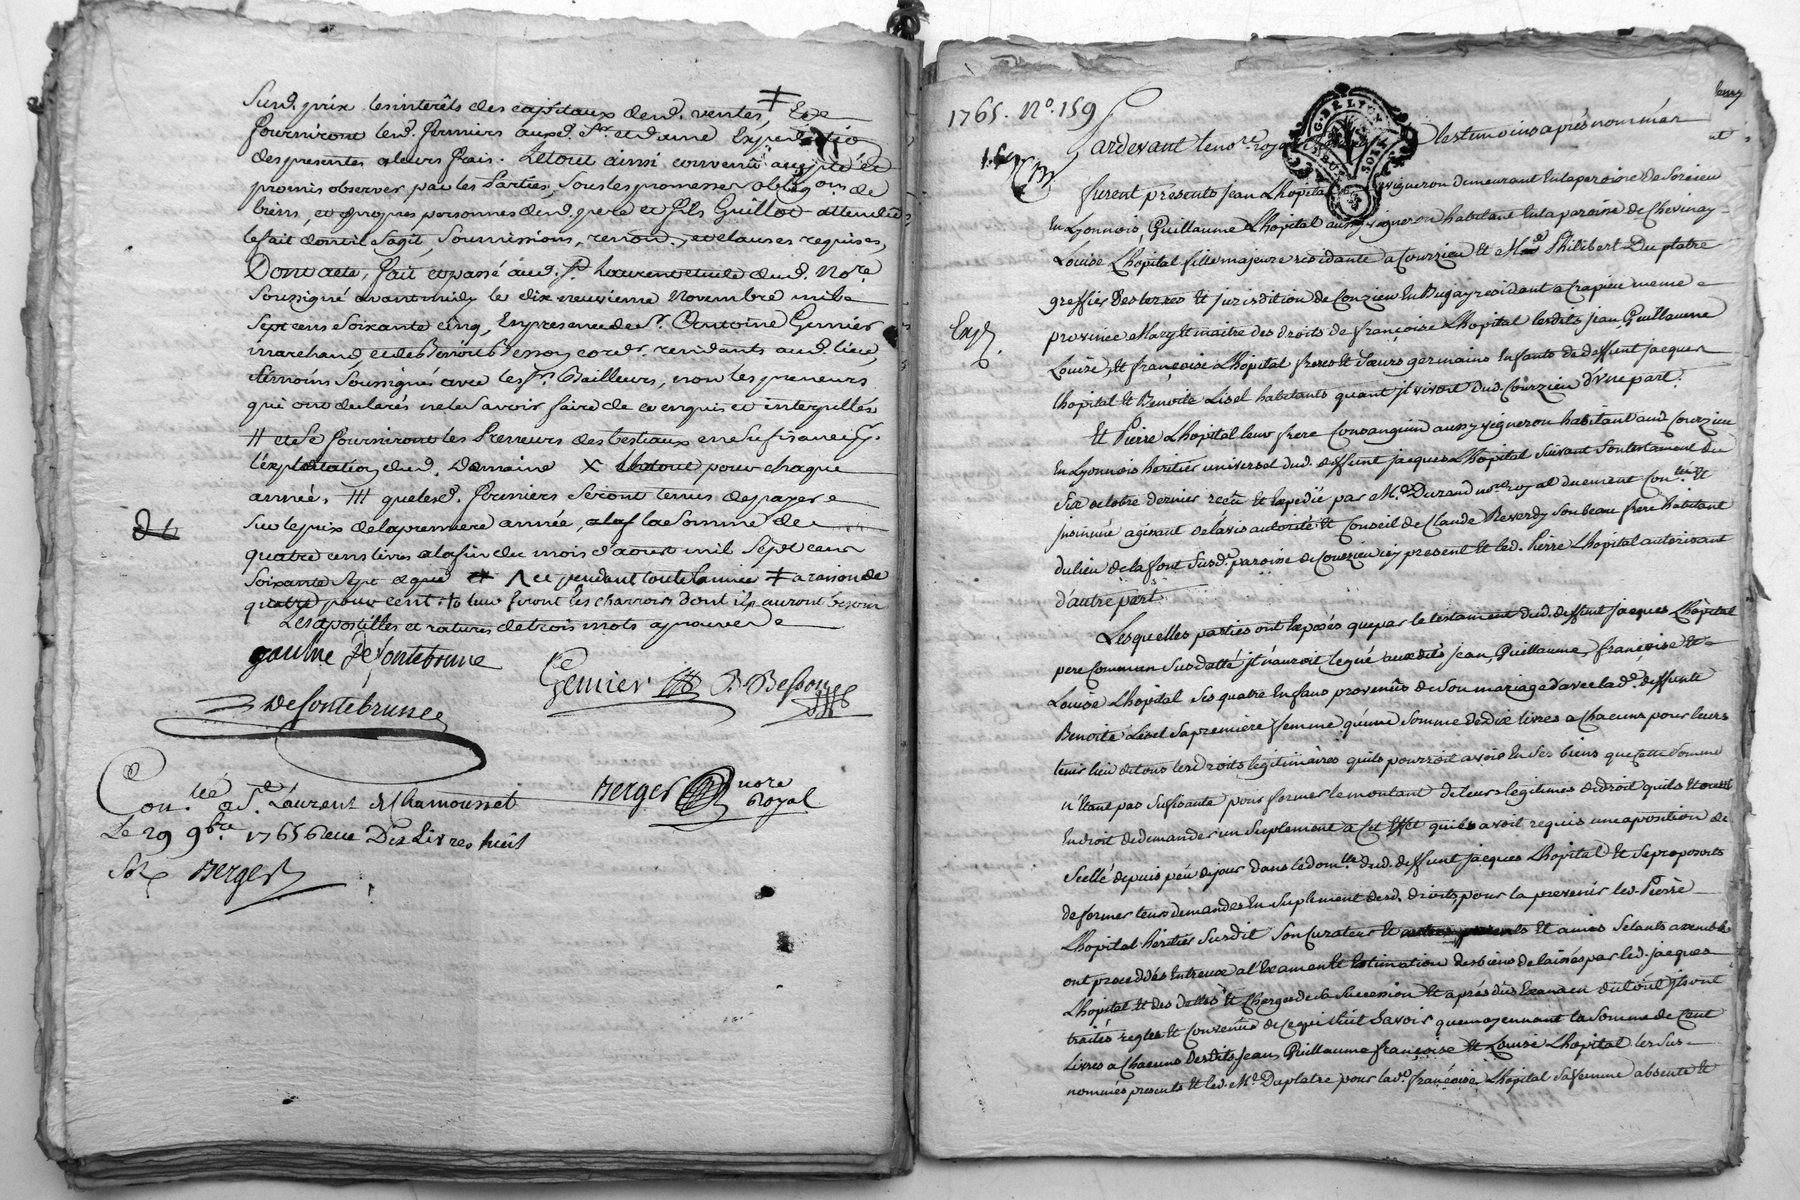 Sur d. prix les interêts des capitaux desd. ventes, ‡ Et
fourniront led. fermiers auxd. Sr. et dame Expedition
des presentes a leurs frais. Le tout ainsi convenu accepté et
promis observer par les Parties, Sous les promesses obligons. de
biens, et propres personnes desd. pere et fils Guillot attendu
le fait dont il s'agit, Soumissions, renon. et clauses requises,
Dont acte, fait et passé aud. St. Laurent etude dud. Nore
Soussigné avant midy le dix neuvieme Novembre mil
Sept cens Soixante cinq, En presence de Sr. Antoine Gemier
marchand, et de Benoit Besson cordr. residants aud. lieu,
témoins Soussignés avec les Srs. Bailleurs, non les preneurs
qui ont declarés ne le Savoir faire de ce enquis et interpellés
// et Se fourniront les Preneurs des bestiaux en Sufisance pr.
l'exploitation dud. Domaine X le tout pour chaque
année. /// que lesd. fermiers Seront tenus de payer
Sur le prix de la premiere année, a la la Somme de
quatre cens livres a la fin du mois d'aoust mil Sept cens
Soixante Sept et que cependant toute l'année ‡ a raison de
quatre pour cent. leur feront les charrois dont ils auront besoin
Les apostilles et ratures de trois mots aprouvées
gaulne De fontebrune
Gemier B. Besson
Defontebrune
Berger nore
Royal
Con.lée a St. Laurent de Chamousset
Le 29 9bre 1765 Reçu Dix Livres huit
Sols Berger
1765. No. 159
Pardevant le nore. royal les temoins après nommés
furent présents Jean Lhopital vigneron demeurant en la paroisse de
En Lyonnois, Guillaume Lhopital aussy vigneron habitant En la paroisse de Chevinay
Louise Lhopital fille majeure residante a Courzieu Et Me. Philibert Duplatre
greffier Des terres Et jurisdition de Conzieu En Bugay residant a Crapieu meme
Exp.
province Mary Et maitre des droits de françoise Lhopital lesdits Jean, Guillaume
Louise, Et françoise Lhopital freres Et Soeurs germains Enfants de deffunt jacques
Lhopital Et Benoite Lisel habitants quant jl vivoit dud. Courzieu d'une part.
Et Pierre Lhopital leur frere Consanguin aussy vigneron habitant aud. Courzieu
En Lyonnois heritier universel dud. deffunt jacques Lhopital Suivant Son testament du
Six octobre dernier reçu Et Expedié par Me. Durand nre. royal duement Con.lée Et
jnsinué agissant de l'avis autorité Et Conseil de Claude Reverdy Son beau frere habitant
du lieu de la font Susd. paroisse de Courzieu icy present Et led. Pierre Lhopital autorisant
d'autre part
Lesquelles parties ont Exposés que par le testament dud. deffunt jacques Lhopital
pere Commun Susdatté jl n'auroit legué auxdits Jean, Guillaume, françoise Et
Louise Lhopital Ses quatre Enfans provenûs de Son mariage d'avec lad. deffunte
Benoite Lisel Sa premiere femme qu'une Somme de Dix livres a Chacuns pour leurs
tenir lieu de tous les droits legitimaires quils pourroit avoir En Ses biens que Cette Somme
n'Etant pas Sufisante pour former le montant de leurs legitimes de droit quils Etoient
En droit de demander un Suplement a Cet Effet quils avoit requis une aposition de
Scellé depuis peu de jour dans le dom.lle dud. deffunt jacques Lhopital Et Se proposoits
de former leurs demandes En Suplement desd. droits pour la prevenir led. Pierre
Lhopital héritier Susdit Son Curateur Et Et amis S'etants assemblé
ont procedés Entreux a l'Examen Et Estimation des biens delaissés par led. jacques
Lhopital Et des dettes Et Charges de la Succession Et après dûe Examen du tout jls ont
traités réglés Et Convenûs de Ce qui Suit Savoir que moyennant la Somme de Cent
Livres a Chacuns Desdits Jean, Guillaume françoise Et Louise Lhopital les Sus-
nommés presents Et led. Me. Duplatre pour lad. françoise Lhopital Sa femme absente Et